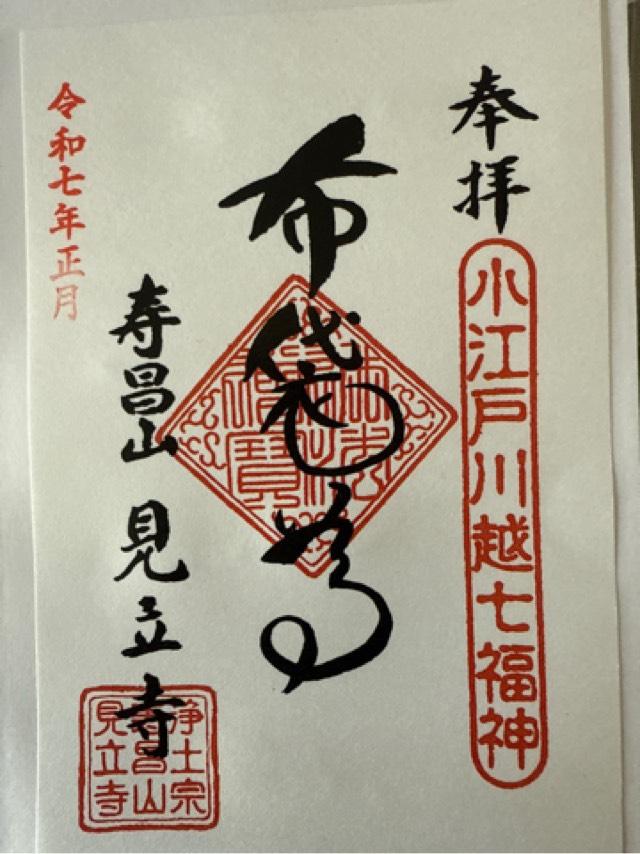 奉拝
小江戸川越七福神
布袋尊
寿昌山 見立寺
令和七年正月
浄土宗
寿昌山
見立寺